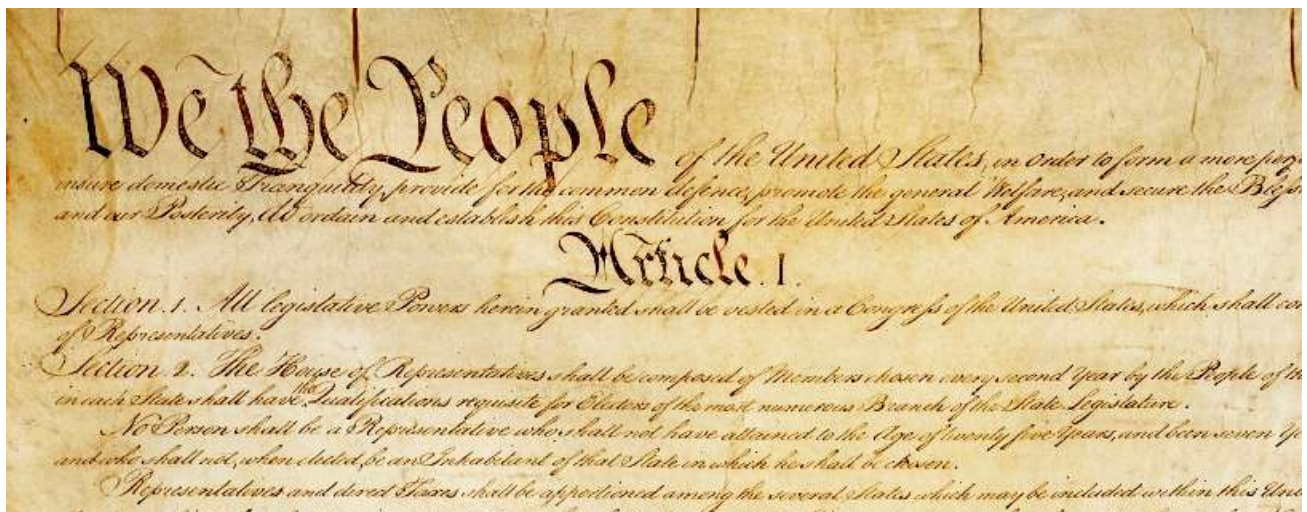 We the People of the United States, in Order to form a more
insure domestic Tranquility, provide for the common defence, promote the general Welfare, and secure the
and our Posterity, do ordain and establish this Constitution for the United States of America.
Article. I.
Section. 1. All legislative Powers herein granted shall be vested in a Congress of the United States, which shall
of Representatives.
Section. 2. The House of Representatives shall be composed of Members chosen every second Year by the People of
in each State shall have the Qualifications requisite for Electors of the most numerous Branch of the State Legislature.
No Person shall be a Representative who shall not have attained to the Age of twenty five Years, and been seven
and who shall not, when elected, be an Inhabitant of that State in which he shall be chosen.
Representatives and direct Taxes shall be apportioned among the several States which may be included within this